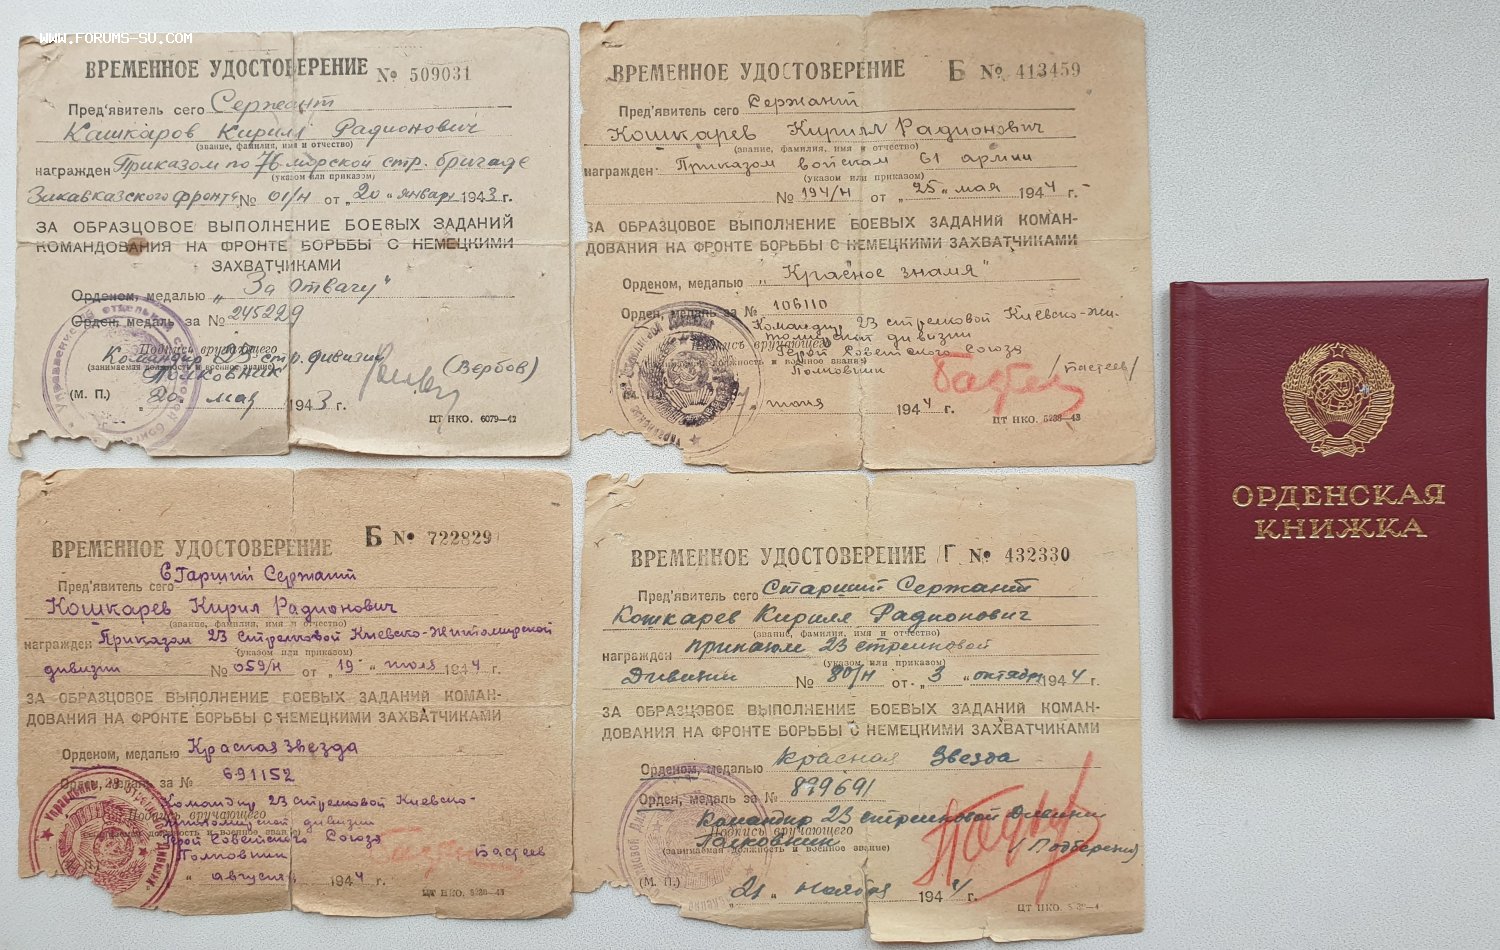 WWW.FORUMS-SU.COM
ВРЕМЕННОЕ УДОСТОВЕРЕНИЕ № 509031
Пред'явитель сего Сержант
Кашкаров Кирилл Радионович
(звание, фамилия, имя и отчество)
награжден Приказом по 76 морской стр. бригаде
(указом или приказом)
Закавказского фронта № 01/н от „20 „ январ 1943 г.
ЗА ОБРАЗЦОВОЕ ВЫПОЛНЕНИЕ БОЕВЫХ ЗАДАНИЙ
КОМАНДОВАНИЯ НА ФРОНТЕ БОРЬБЫ С НЕМЕЦКИМИ
ЗАХВАТЧИКАМИ
Орденом, медалью „За отвагу"
Орден, медаль за № 245229
Подпись вручающего
Командир 23 стр. дивизии
(занимаемая должность и военное звание)
Полковник (Вербов)
(М. П.) „20 „ мая 1943 г.
ЦТ НКО. 6079—42
ВРЕМЕННОЕ УДОСТОВЕРЕНИЕ Б № 413459
Пред'явитель сего Сержант
Кошкарев Кирилл Радионович
(звание, фамилия, имя и отчество)
награжден Приказом войскам 61 армии
(указом или приказом)
№ 194/н от „25 „ мая 1944 г.
ЗА ОБРАЗЦОВОЕ ВЫПОЛНЕНИЕ БОЕВЫХ ЗАДАНИЙ КОМАН-
ДОВАНИЯ НА ФРОНТЕ БОРЬБЫ С НЕМЕЦКИМИ ЗАХВАТЧИКАМИ
Орденом, медалью „Красное знамя"
Орден, медаль за № 106110
Командир 23 стрелковой Киевско-Жи-
томирской дивизии
Подпись вручающего
Герой Советского Союза
должность и военное звание)
Полковник /Бастеев/
(М. П.) июня 1944 г.
ЦТ НКО. 5238—43
ВРЕМЕННОЕ УДОСТОВЕРЕНИЕ Б № 722829
Пред'явитель сего Старший Сержант
Кошкарев Кирил Радионович
(звание, фамилия, имя и отчество)
награжден Приказом 23 стрелковой Киевско-Житомирской
(указом или приказом)
дивизии № 059/н от „19 „ июля 1944 г.
ЗА ОБРАЗЦОВОЕ ВЫПОЛНЕНИЕ БОЕВЫХ ЗАДАНИЙ КОМАН-
ДОВАНИЯ НА ФРОНТЕ БОРЬБЫ С НЕМЕЦКИМИ ЗАХВАТЧИКАМИ
Орденом, медалью Красная Звезда
Орден, медаль за № 691152
Командир 23 стрелковой Киевско-
Подпись вручающего
Житомирской дивизии
должность и военное звание)
Герой Советского Союза
Полковник Бастеев
„ августа 1944 г.
ЦТ НКО. 5238—43
ВРЕМЕННОЕ УДОСТОВЕРЕНИЕ Г № 432330
Пред'явитель сего Старший Сержант
Кошкарев Кирилл Радионович
(звание, фамилия, имя и отчество)
награжден приказом 23 стрелковой
(указом или приказом)
Дивизии № 80/н от „3 „ октября 1944 г.
ЗА ОБРАЗЦОВОЕ ВЫПОЛНЕНИЕ БОЕВЫХ ЗАДАНИЙ КОМАН-
ДОВАНИЯ НА ФРОНТЕ БОРЬБЫ С НЕМЕЦКИМИ ЗАХВАТЧИКАМИ
Орденом, медалью Красная Звезда
Орден, медаль за № 879691
Командир 23 стрелковой Дивизии
Подпись вручающего
Полковник
(занимаемая должность и военное звание)
(М. П.) „21 „ ноября 1944 г.
ЦТ НКО.
ОРДЕНСКАЯ
КНИЖКА